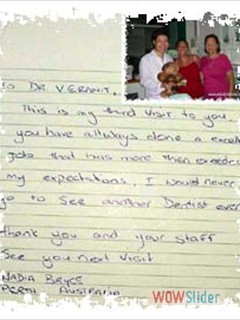 TO DR VERANIT.
This is my third visit to you.
you have allways done a excellent
Job that has more then exceeded
my expectations. I would never
go to see another Dentist ever
thank you and your staff
See you next visit
NADIA BRYCE
PERTH AUSTRALIA
WOWSlider